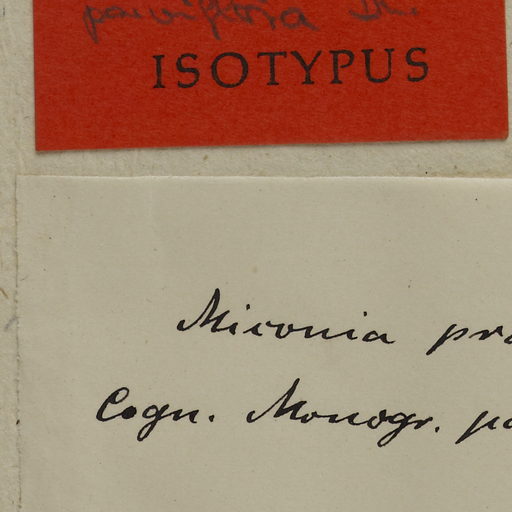 parviflora DC.
ISOTYPUS
Miconia pra
Cogn. Monogr. pa